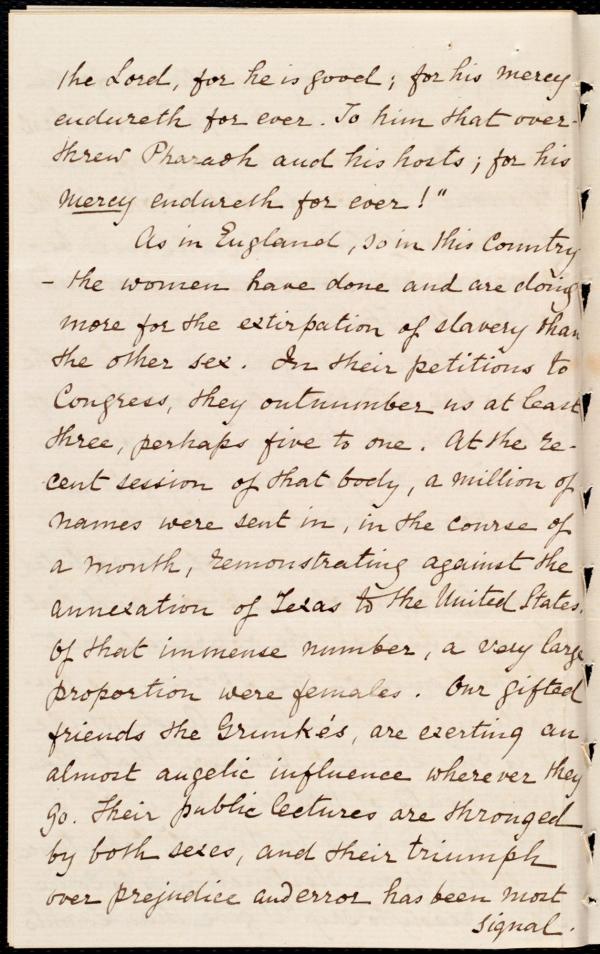 the Lord, for he is good; for his mercy
endureth for ever. To him that over-
threw Pharaoh and his hosts; for his
mercy endureth for ever!"
As in England, so in this Country
- the women have done and are doing
more for the extirpation of slavery than
the other sex. In their petitions to
Congress, they outnumber us at least
three, perhaps five to one. At the re-
cent session of that body, a million of
names were sent in, in the course of
a month, remonstrating against the
annexation of Texas to the United States.
Of that immense number, a very large
proportion were females. Our gifted
friends the Grimkés, are exerting an
almost angelic influence wherever they
go. Their public lectures are thronged
by both sexes, and their triumph
over prejudice and error has been most
signal.